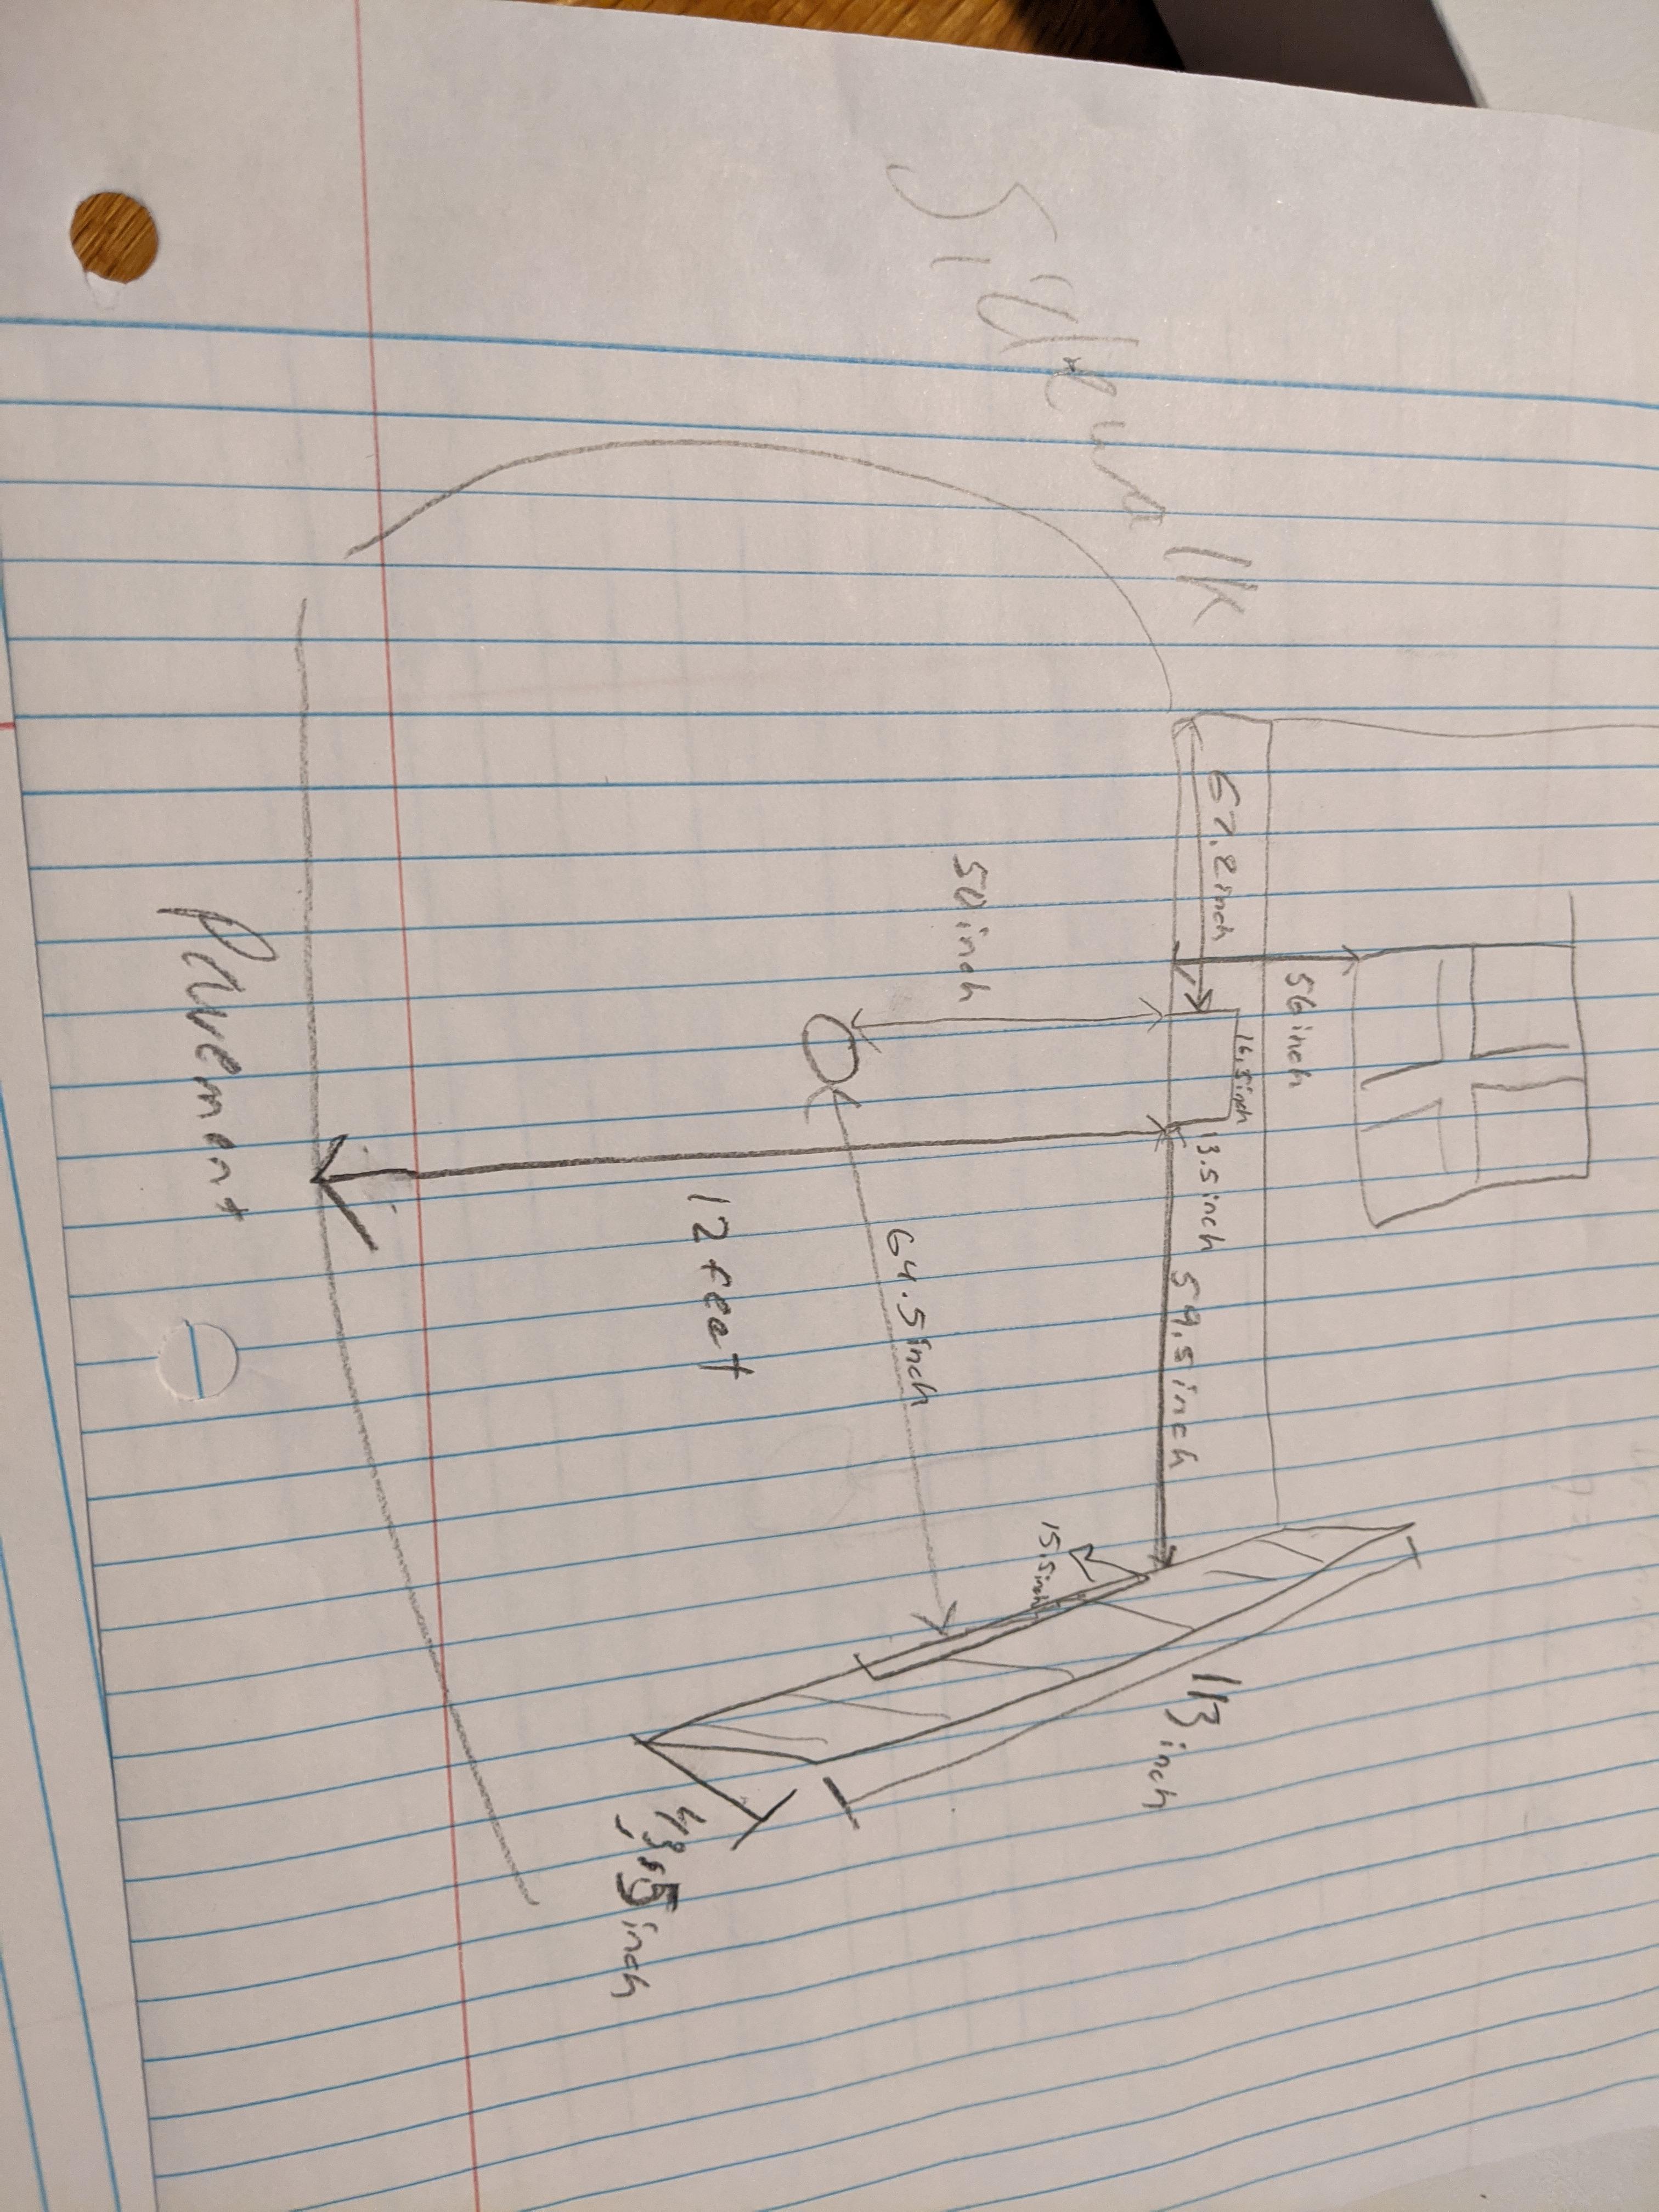 56 inch
16.5inch
67.2 inch
13.5 inch
59.5 inch
113 inch
Sidewalk
15.5inch
50 inch
64.5 inch
12 feet
43.5 inch
Pavement